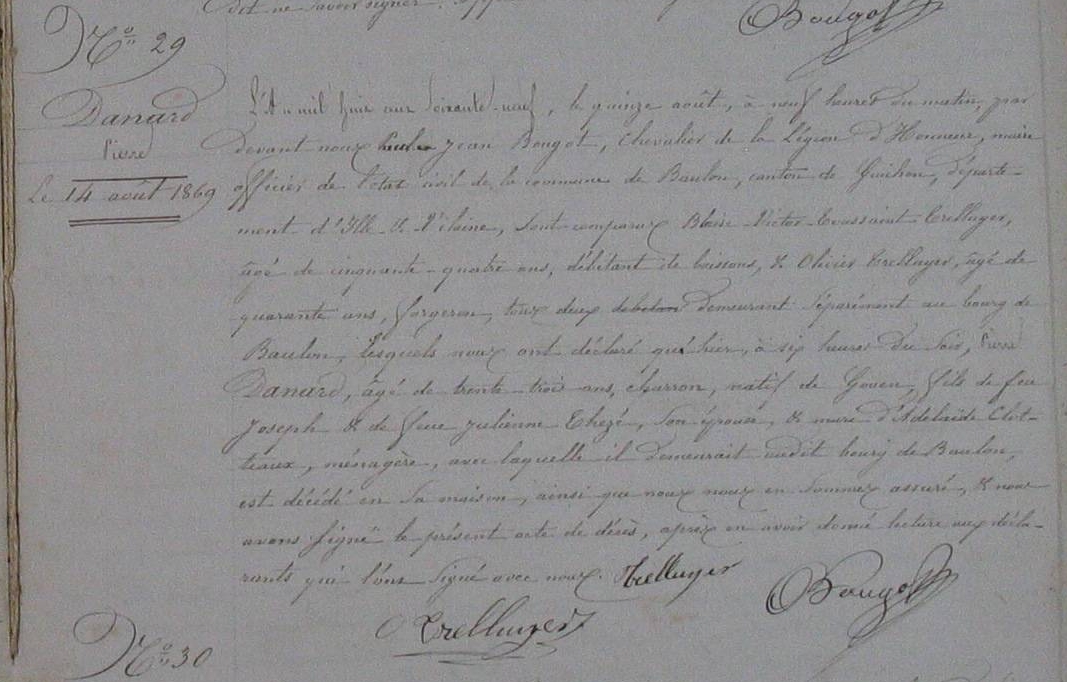 dit ne savoir signer.
Bougot
N° 29
Danard
Pierre
Le 14 août 1869
L'An mil huit cent soixante-neuf, le quinze août, à neuf heures du matin, par
devant nous Jean Bougot, Chevalier de la Légion d'Honneur, maire
officier de l'état civil de la commune de Baulon, canton de Guichen, départe-
ment d'Ille-&-Vilaine, sont comparus Blaise-Victor-Toussaint Trellluyer,
âgé de cinquante-quatre ans, débitant de boissons, & Olivier Trelluyer, âgé de
quarante ans, forgeron, tous deux demeurant séparément au bourg de
Baulon, lesquels nous ont déclaré qu'hier, à six heures du soir, Pierre
Danard, âgé de trente-trois ans, charron, natif de Goven, fils de feu
Joseph & de feue Julienne Thezé, son épouse, & mari d'Adelaïde Clot-
teaux, ménagère, avec laquelle il demeurait audit bourg de Baulon,
est décédé en sa maison, ainsi que nous nous en sommes assuré, & nous
avons signé le présent acte de décès, après en avoir donné lecture aux décla-
rants qui l'ont signé avec nous. Trelluyer
O Trelluyer
Bougot
N° 30